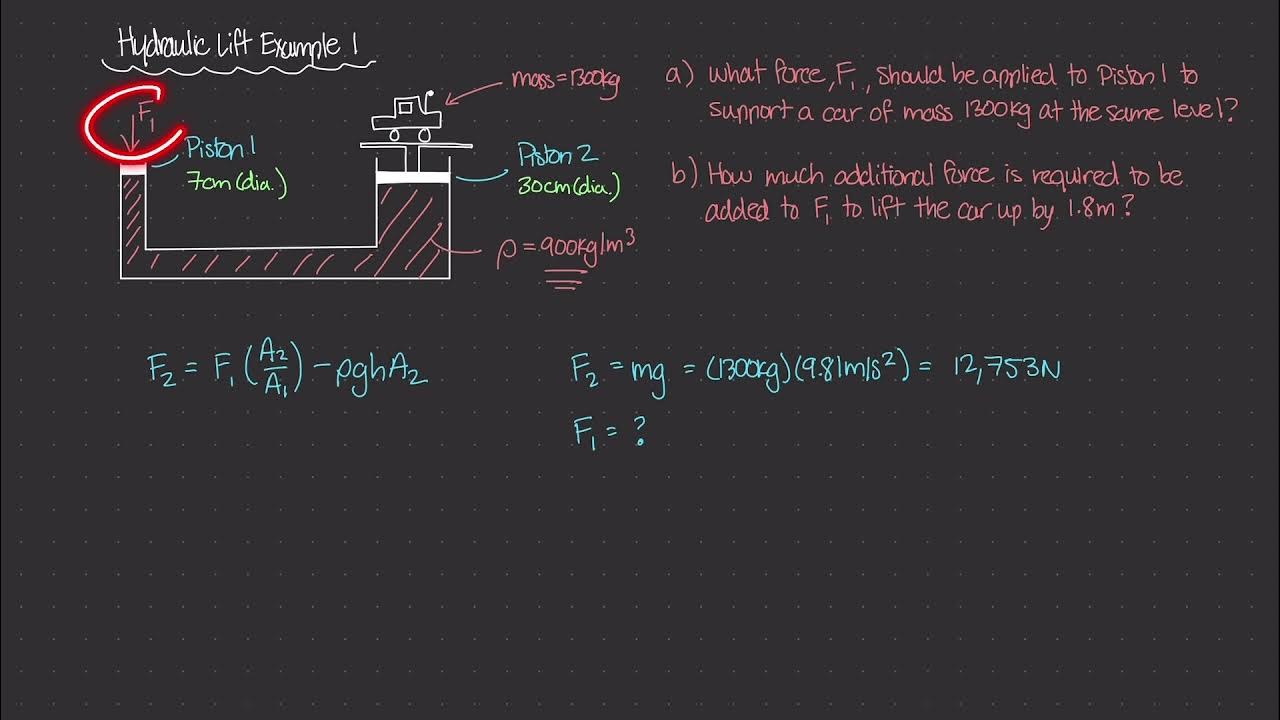 Hydraulic Lift Example 1
mass = 1300kg
F₁
Piston 1
7cm (dia.)
Piston 2
30cm (dia.)
ρ = 900kg/m³
a) What force, F₁, should be applied to Piston 1 to
support a car of mass 1300kg at the same level?
b) How much additional force is required to be
added to F₁ to lift the car up by 1.8m?
F₂ = F₁ (A₂/A₁) − ρghA₂
F₂ = mg = (1300kg)(9.81m/s²) = 12,753N
F₁ = ?